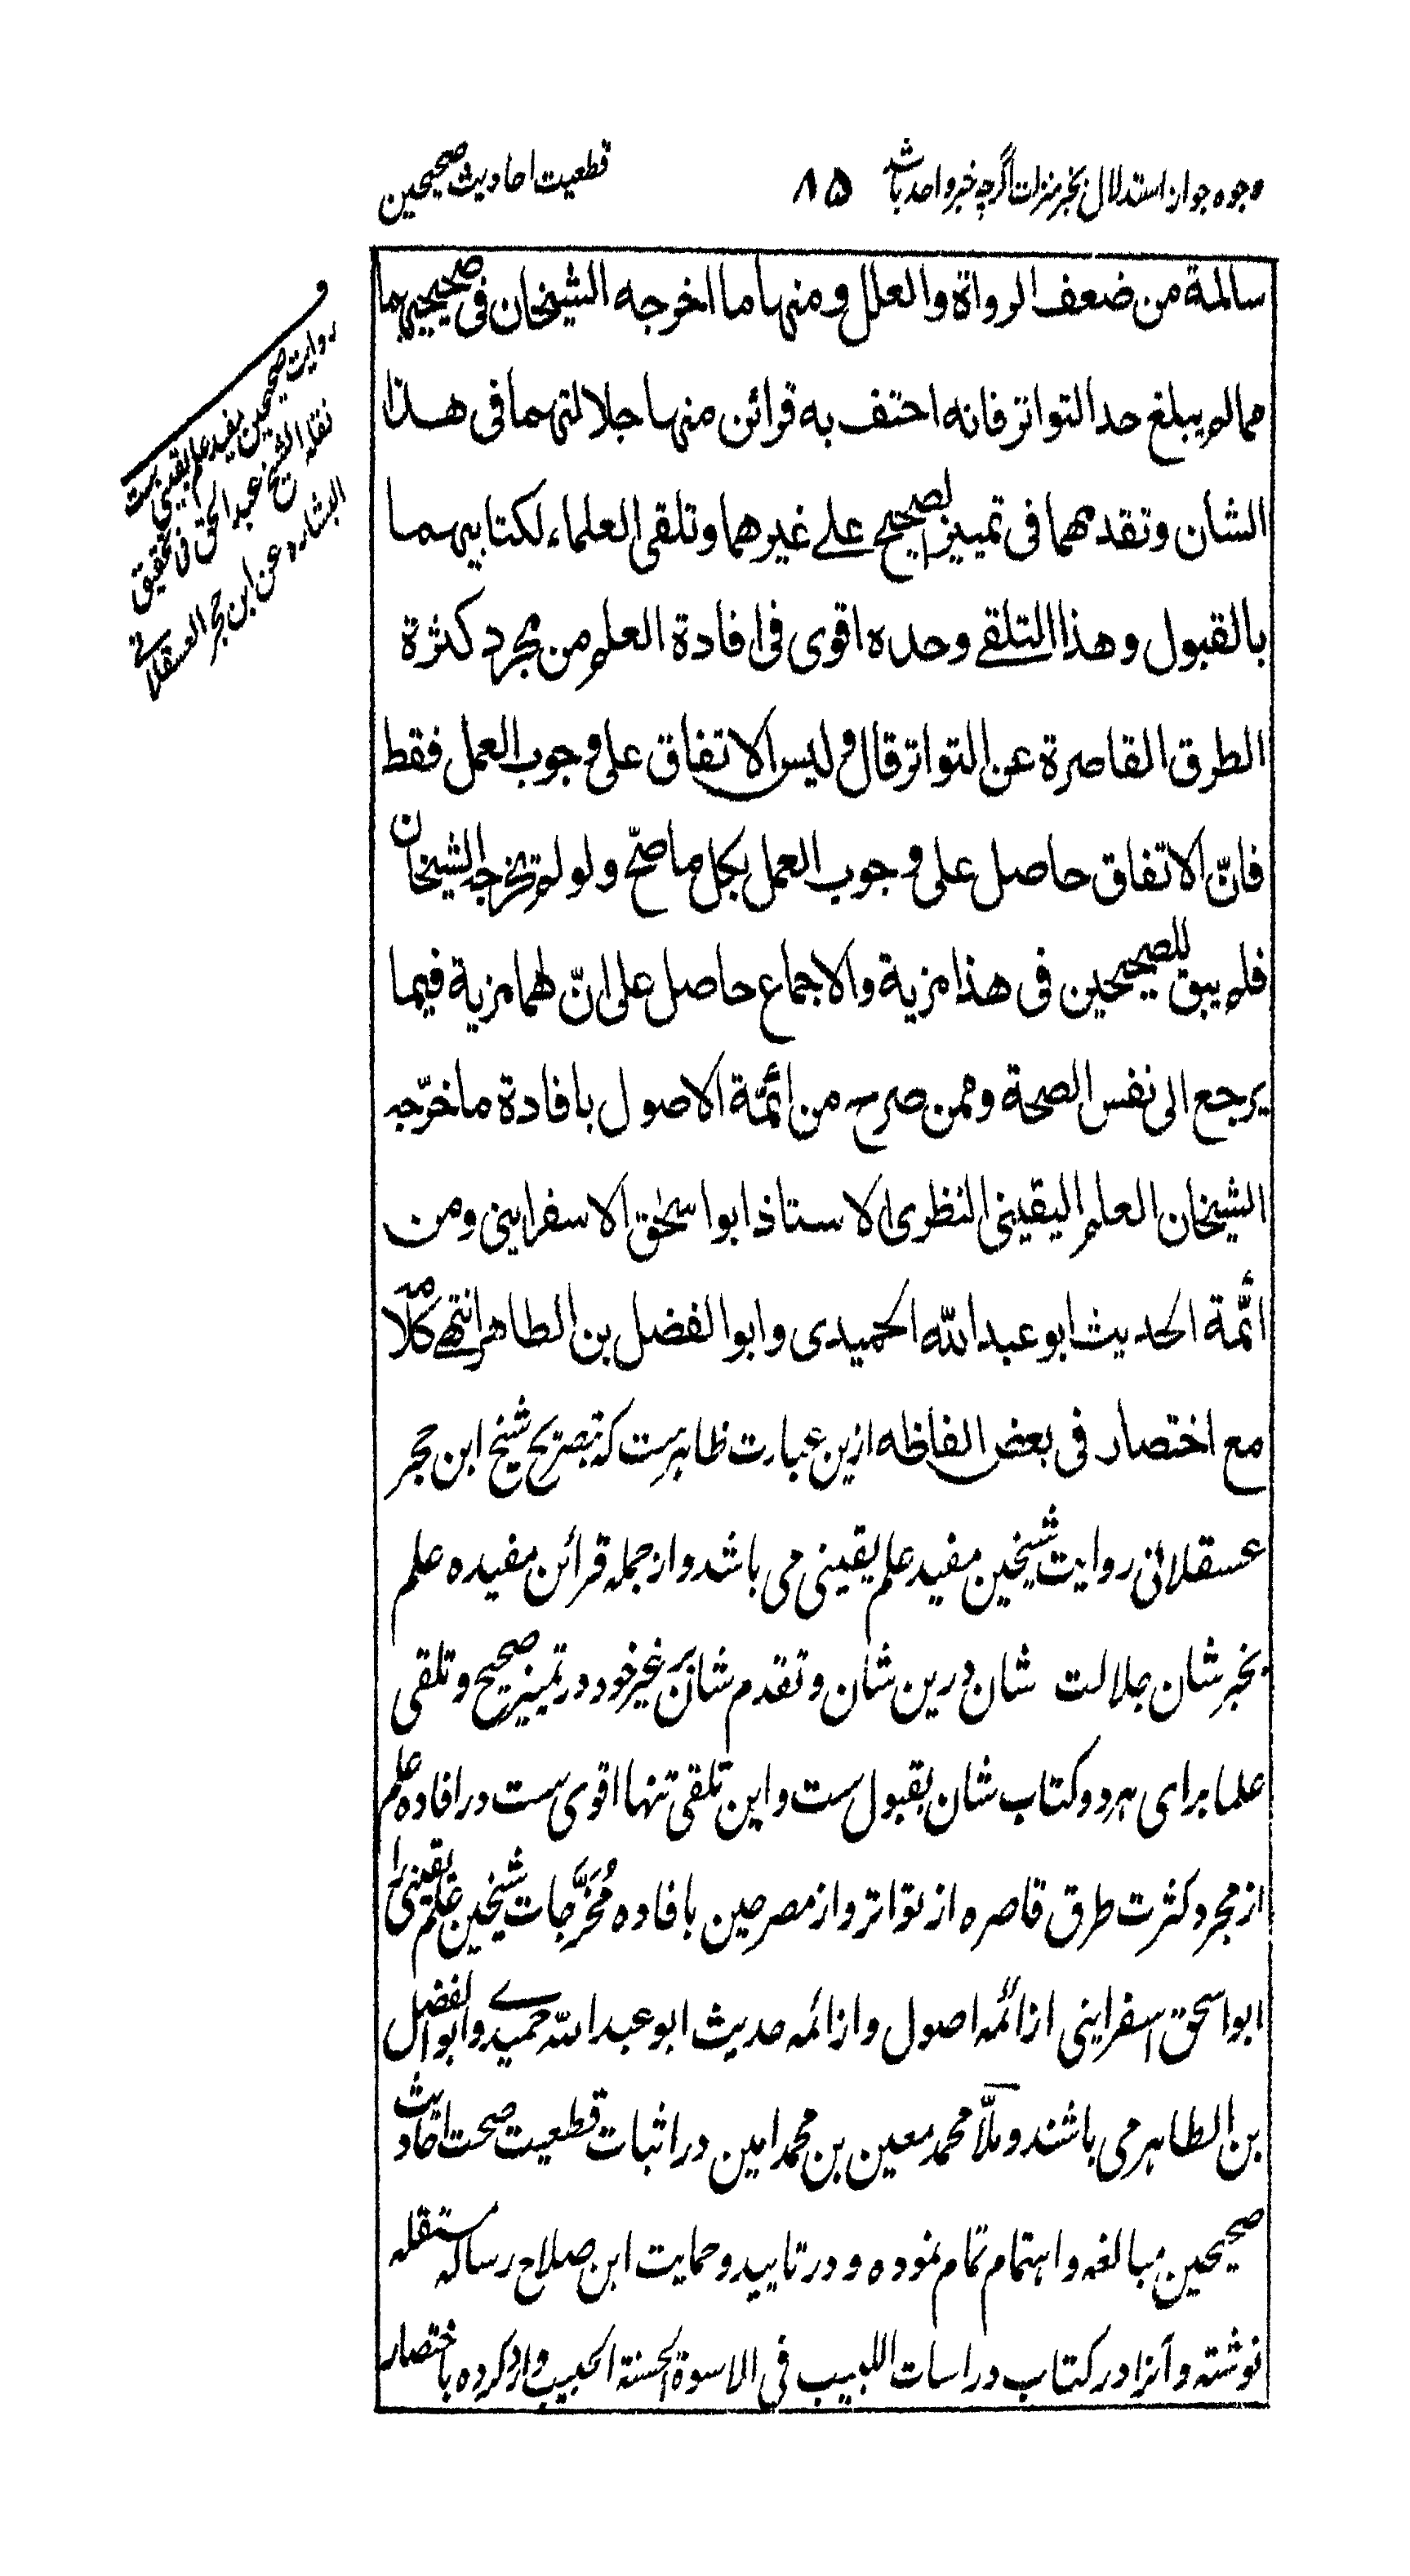 وجوه جواز استدلال بخبر منزلت اگرچه خبر واحد باشد
۸۵
قطعیت احادیث صحیحین
سالمة من ضعف الرواة والعلل ومنها ما اخرجه الشیخان فی صحیحیهما
مما لم یبلغ حد التواتر فانه احتف به قرائن منها جلالتهما فی هذا
الشان وتقدمهما فی تمییز الصحیح علے غیرهما وتلقی العلماء لکتابیهما
بالقبول وهذا التلقے وحده اقوی فی افادة العلم من مجرد کثرة
الطرق القاصرة عن التواتر قال ولیس الاتفاق علی وجوب العمل فقط
فانّ الاتفاق حاصل علی وجوب العمل بکل ما صحّ ولو لم یخرجه الشیخان
فلم یبق للصحیحین فی هذا مزیة والاجماع حاصل علی انّ لهما مزیة فیما
یرجع الی نفس الصحة وممن صرح من ائمّة الاصول بافادة ما خرّجه
الشیخان العلم الیقینی النظری الاستاذ ابو اسحٰق الاسفراینی ومن
ائمّة الحدیث ابو عبد الله الحمیدی وابو الفضل بن الطاهر انتهے کلامه
مع اختصار فی بعض الفاظه ازین عبارت ظاهرست که بتصریح شیخ ابن حجر
عسقلانی روایت شیخین مفید علم یقینی می باشد و از جمله قرائن مفیده علم
بخبر شان جلالت شان درین شان و تقدم شان بر غیر خود در تمییز صحیح و تلقی
علما برای هر دو کتاب شان بقبول ست و این تلقی تنها اقوی ست در افاده علم
از مجرد کثرت طرق قاصره از تواتر و از مصرحین بافاده مُخَرَّجات شیخین علم یقینی را
ابو اسحق اسفراینی از ائمه اصول و از ائمه حدیث ابو عبد الله حمیدے و ابو الفضل
بن الطاهر می باشند و ملّا محمد معین بن محمد امین در اثبات قطعیت صحت احادیث
صحیحین مبالغه و اهتمام تمام نموده و در تایید و حمایت ابن صلاح رساله مستقله
نوشته و آنرا در کتاب دراسات اللبیب فی الاسوة الحسنة الحبیب وارد کرده باختصار
و
روایت صحیحین مفید علم یقینی ست
نقله الشیخ عبد الحق فی تحقیق
البشاره عن ابن حجر العسقلانے